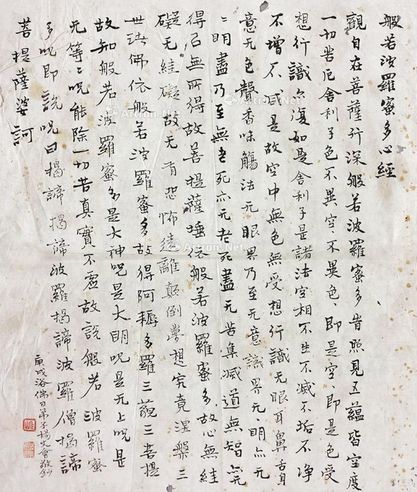 般若波羅蜜多心經
觀自在菩薩行深般若波羅蜜多時照見五蘊皆空度
一切苦厄舍利子色不異空、不異色、即是空、即是色受
想行識亦復如是舍利子是諸法空相不生不滅不垢不净
不增不減是故空中無色無受想行識无眼耳鼻舌身
意无色聲香味觸法无眼界乃至无意識界无明亦无
二明盡乃至無老死亦无老死盡无苦集滅道無智亦无
得以無所得故菩提薩埵依般若波羅蜜多故心無絓
礙无絓礙故无有恐怖遠離顛倒夢想究竟涅槃三
世諸佛依般若波羅蜜多故得阿耨多羅三藐三菩提
故知般若波羅蜜多是大神呪是大明呪是无上呪是
无等二呪能除一切苦真實不虛故說般若波羅蜜
多呪即說呪曰揭諦揭諦波羅揭諦波羅僧揭諦
菩提薩婆訶
庚戌浴佛日弟子楊會敬鈔